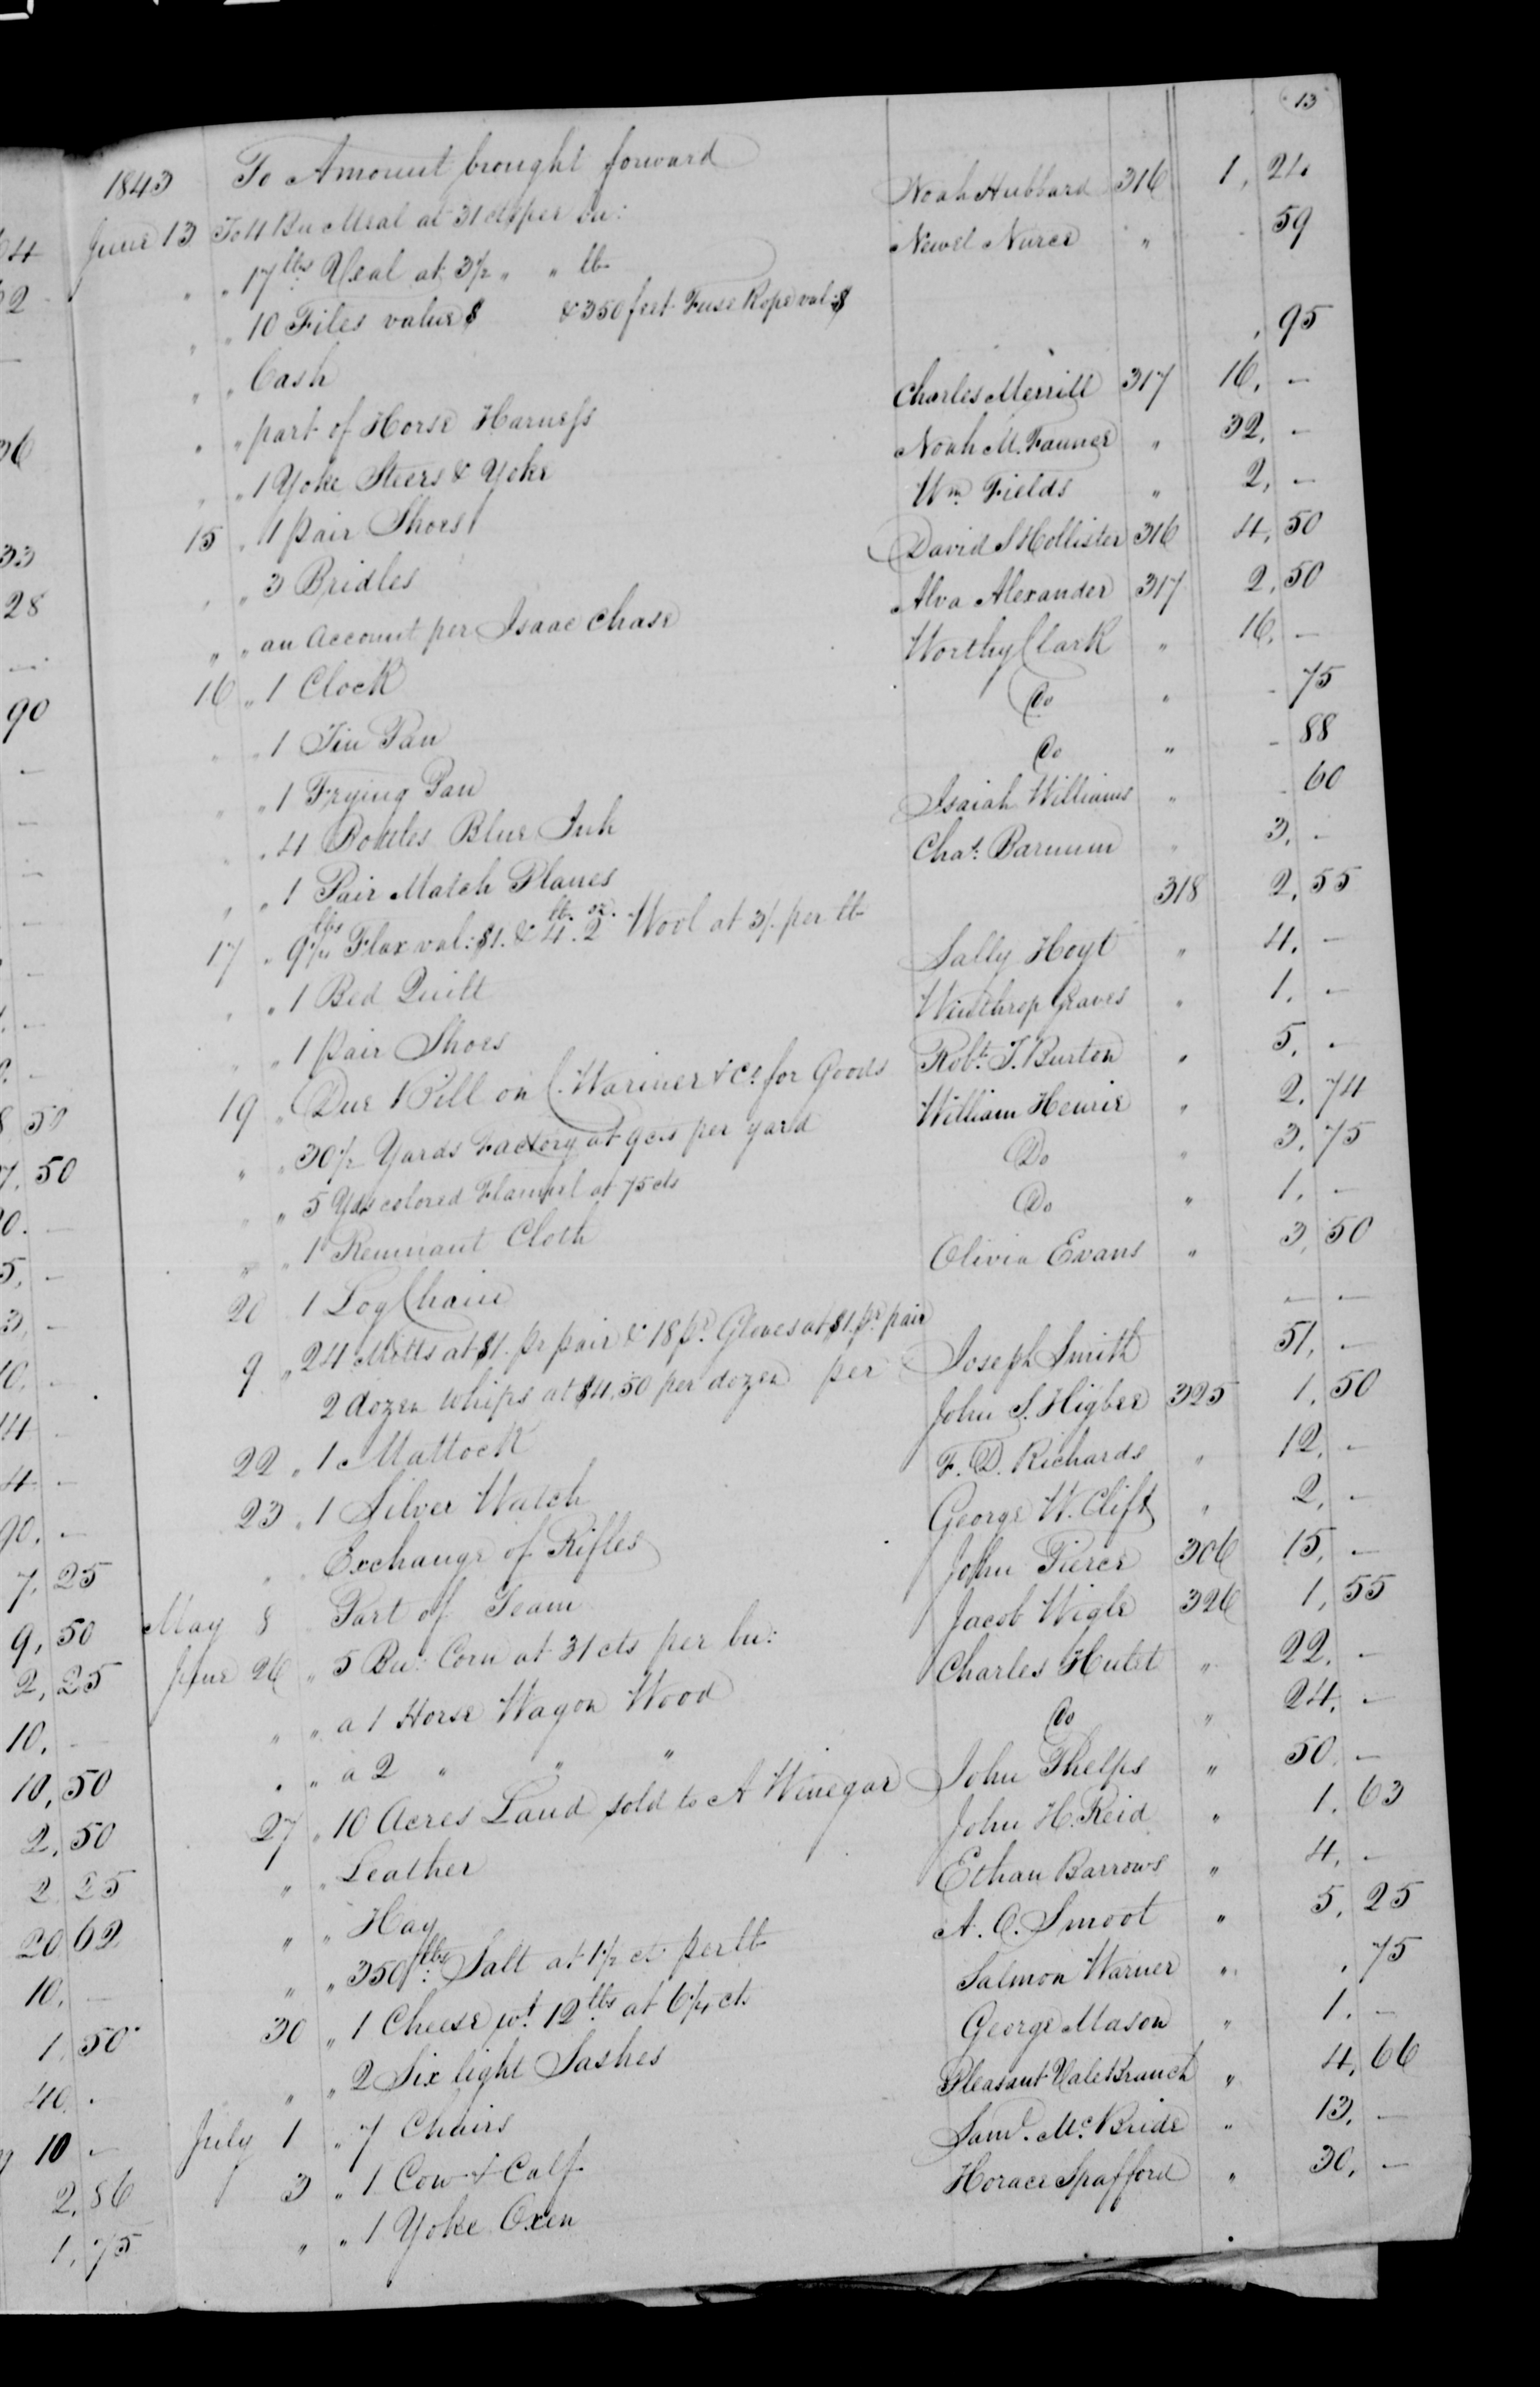 64
62
—
36
33
28
—
90
—
—
—
—
—
. —
. —
8 50
7, 50
20. —
5, —
3, —
10, —
14 —
4 —
90. —
7, 25
9, 50
2, 25
10, —
10, 50
2, 50
2 25
20 62
10. —
1, 50
40. .
10 —
2, 86
1, 75
13
1843 To Amount brought forward
June 13 To 4 Bu Meal at 31 cts per bu: Noah Hubbard 316 1, 24
" " 17 lbs Veal at 3½ " " lb Newel Nurce " 59
" " 10 Files value $ & 350 feet Fuse Rope val: $
" " Cash , 95
" " part of Horse Harness Charles Merrill 317 16, —
" " 1 Yoke Steers & Yoke Noah M. Faunce " 32, —
15 " 1 pair Shoes Wm Fields " 2, —
" " 3 Bridles David S Hollister 316 4, 50
" " an Account per Isaac Chase Alva Alexander 317 2, 50
16 " 1 Clock Worthy Clark " 16, —
" " 1 Tin Pan Do " - 75
" " 1 Frying Pan Do " - 88
" " 4 Bottles Blue Ink Isaiah Williams " - 60
" " 1 Pair Match Planes Chas. Barnum " 3, -
17 " 9½ lbs Flax val: $1. & 4 lb. 2 oz. Wool at 3/ per lb 318 2, 55
" " 1 Bed Quilt Sally Hoyt " 4, —
" " 1 pair Shoes Winthrop Graves " 1, —
19 " Due Bill on C. Wariner & Co. for Goods Robt. T. Burton " 5, -
" " 30½ Yards Factory at 9 cts per yard William Henrie " 2, 74
" " 5 Yds colored Flannel at 75 cts Do " 3, 75
" " 1 Remnant Cloth Do " 1, —
20 1 Log Chain Olivia Evans " 3, 50
9 " 24 Mitts at $1. pr pair & 18 pr. Gloves at $1. pr pair — —
2 dozen whips at $4,50 per dozen per Joseph Smith 51, —
22 " 1 Mattock John S. Higbee 325 1, 50
23 " 1 Silver Watch F. D. Richards " 12, —
" " Exchange of Rifles George W. Clift " 2, —
May 8 Part of Team John Pierce 306 15, —
June 26 " 5 Bu: Corn at 31 cts per bu: Jacob Wigle 326 1, 55
" " a 1 Horse Wagon Wood Charles Hulet " 22, —
" " a 2 " " Do " 24, —
27 " 10 Acres Land sold to A Winegar John Phelps " 50, —
" " Leather John H. Reid " 1, 63
" " Hay Ethan Barrows " 4, —
" " 350 lbs: Salt at 1½ ct per lb A. O. Smoot " 5, 25
30 " 1 Cheese wt 12 lbs at 6¼ cts Salmon Warner " , 75
" " 2 Six light Sashes George Mason " 1, —
July 1 " 7 Chairs Pleasant Vale Branch " 4, 66
3 " 1 Cow & Calf Saml. McBride " 13, —
" " 1 Yoke Oxen Horace Spafford " 30, —